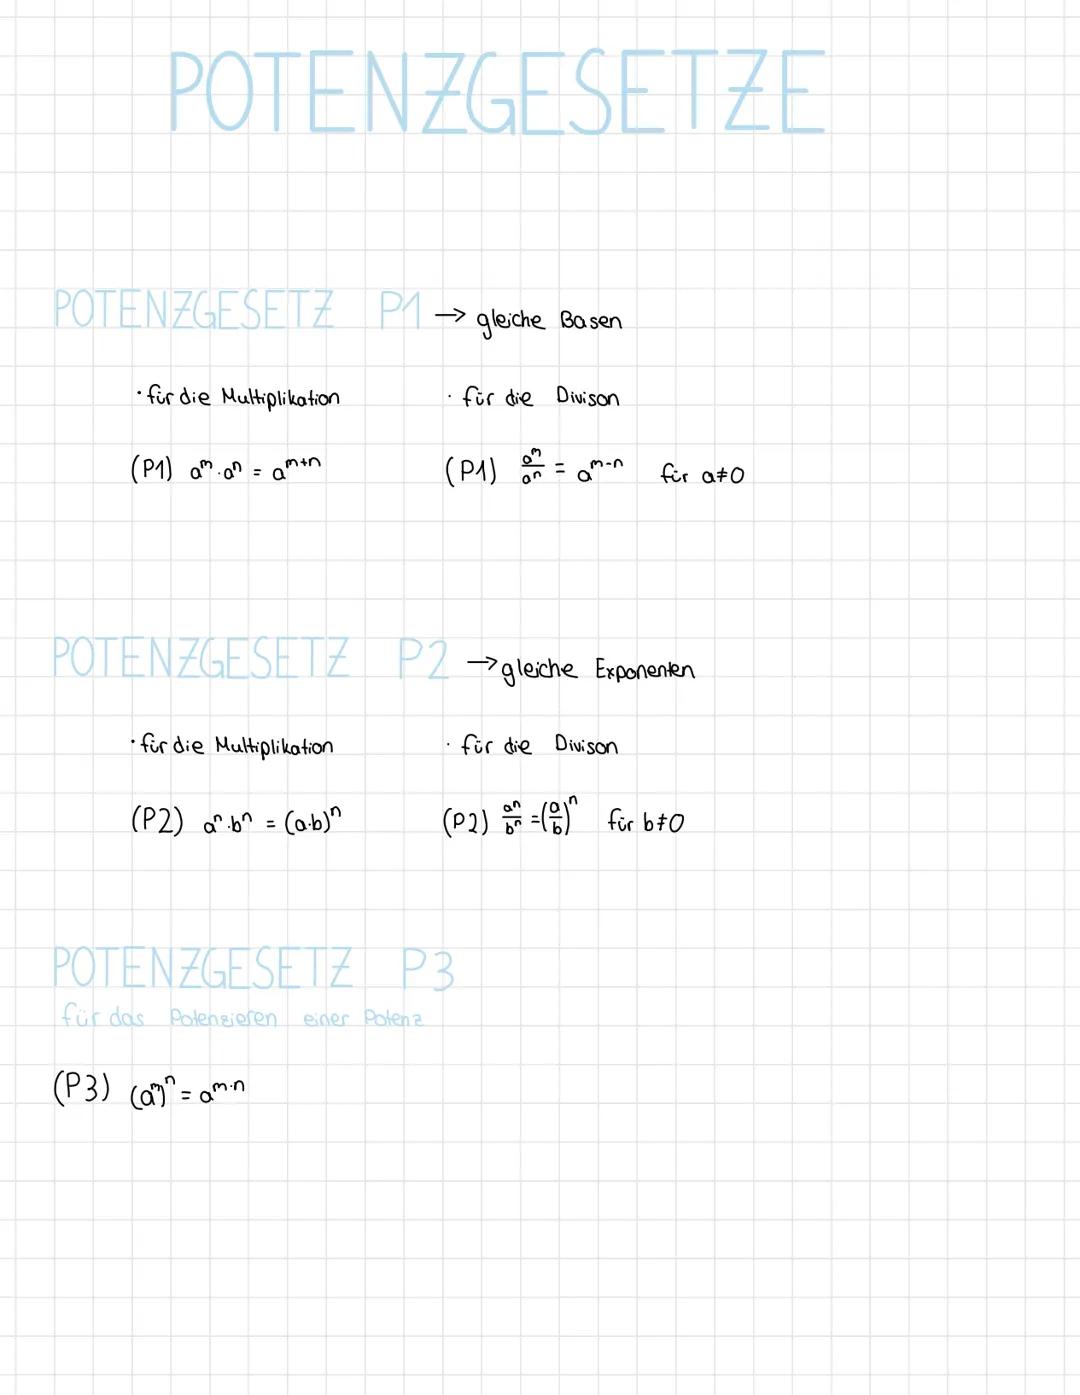 POTENZGESETZE
POTENZGESETZ P1 → gleiche Basen
· für die Multiplikation · für die Divison
(P1) aᵐ · aⁿ = aᵐ⁺ⁿ (P1) aᵐ/aⁿ = aᵐ⁻ⁿ für a≠0
POTENZGESETZ P2 → gleiche Exponenten
· für die Multiplikation · für die Divison
(P2) aⁿ · bⁿ = (a·b)ⁿ (P2) aⁿ/bⁿ = (a/b)ⁿ für b≠0
POTENZGESETZ P3
für das Potenzieren einer Potenz
(P3) (aᵐ)ⁿ = aᵐ·ⁿ